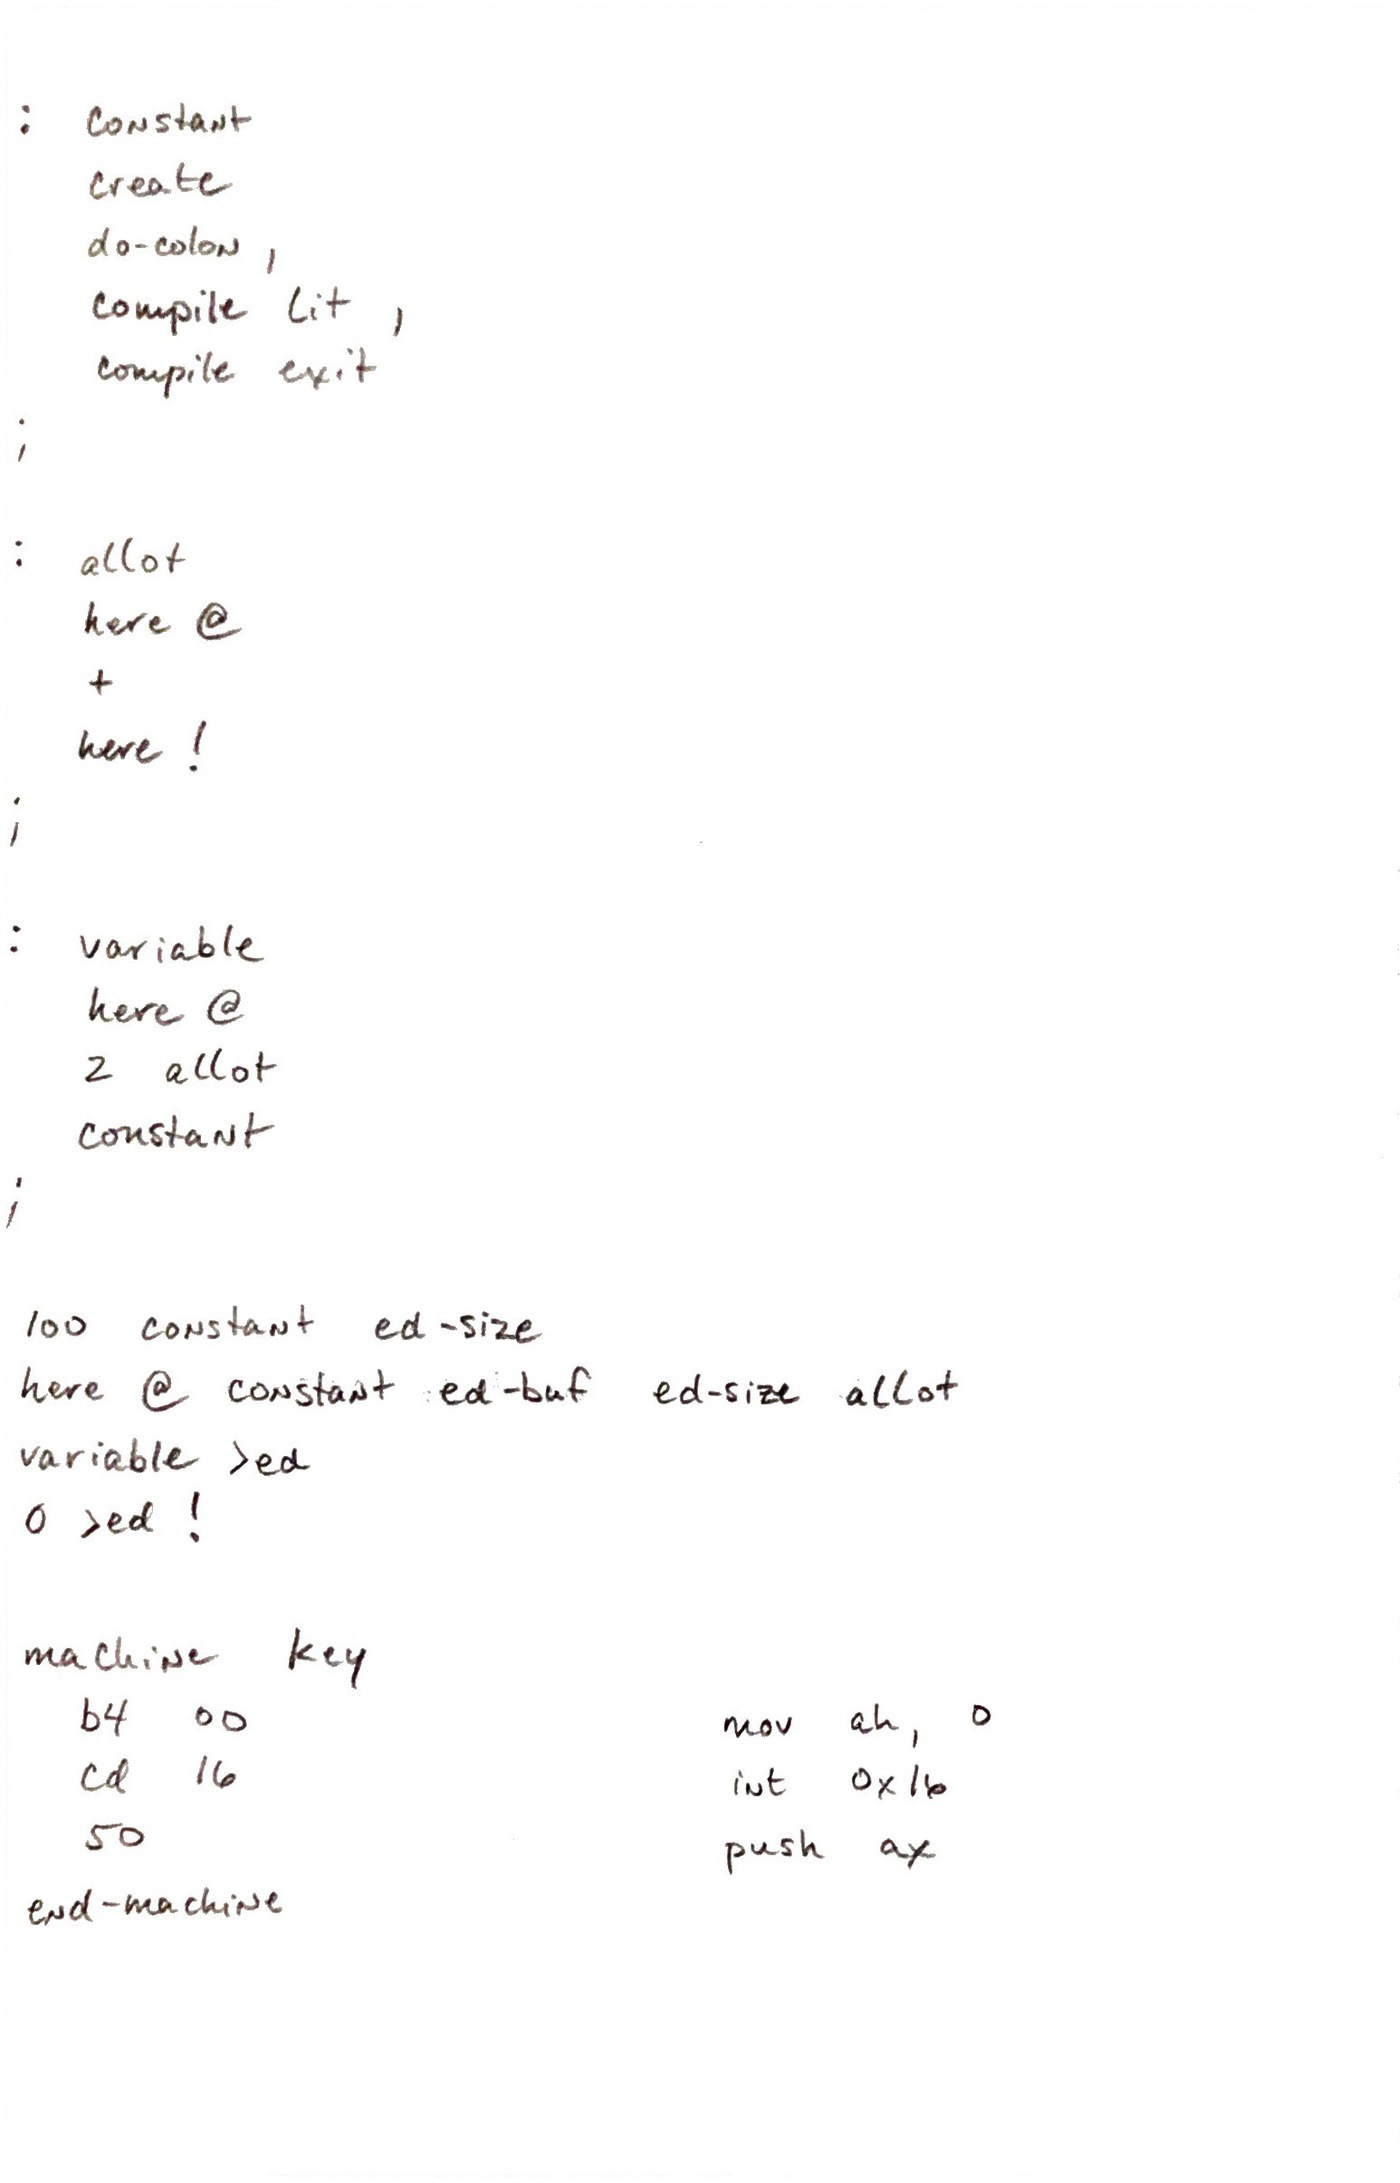 : constant
create
do-colon ,
compile lit ,
compile exit
;
: allot
here @
+
here !
;
: variable
here @
2 allot
constant
;
100 constant ed-size
here @ constant ed-buf ed-size allot
variable >ed
0 >ed !
machine key
b4 00 mov ah, 0
cd 16 int 0x16
50 push ax
end-machine